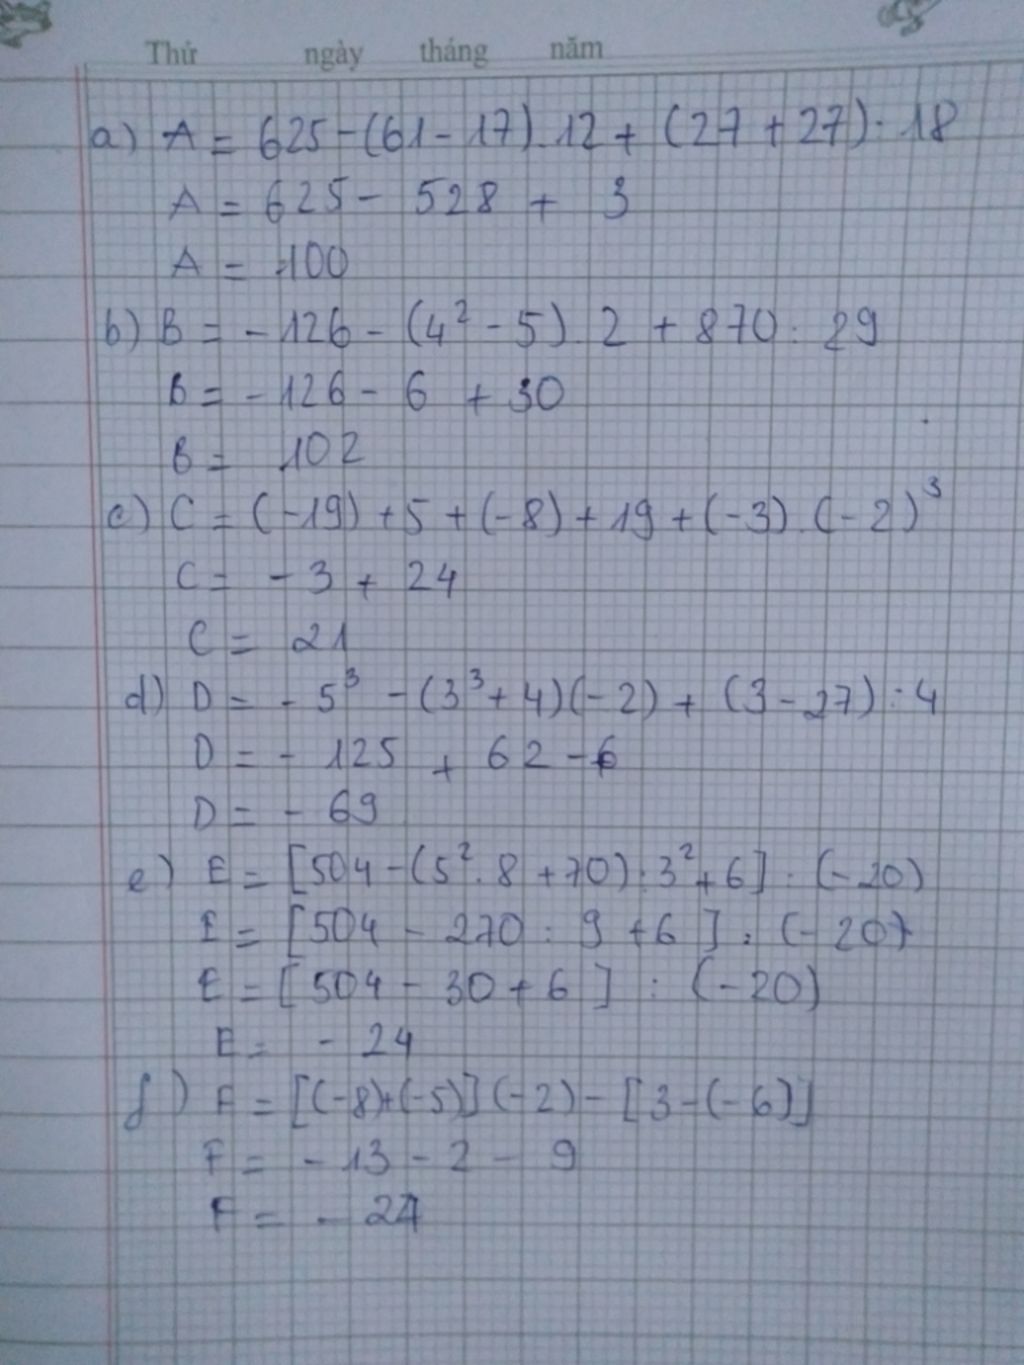 Thứ ngày tháng năm
a) A = 625 - (61 - 17) . 12 + (27 + 27) : 18
A = 625 - 528 + 3
A = 100
b) B = - 126 - (4² - 5) . 2 + 870 : 29
B = - 126 - 6 + 30
B = 102
c) C = (-19) + 5 + (-8) + 19 + (-3) . (-2)³
C = - 3 + 24
C = 21
d) D = - 5³ - (3³ + 4)(-2) + (3 - 27) : 4
D = - 125 + 62 - 6
D = - 69
e) E = [504 - (5² . 8 + 70) : 3² + 6] : (-20)
E = [504 - 270 : 9 + 6 ] : (-20)
E = [504 - 30 + 6 ] : (-20)
E = - 24
f) F = [(-8) + (-5)] (-2) - [3 - (-6)]
F = - 13 - 2 - 9
F = - 24